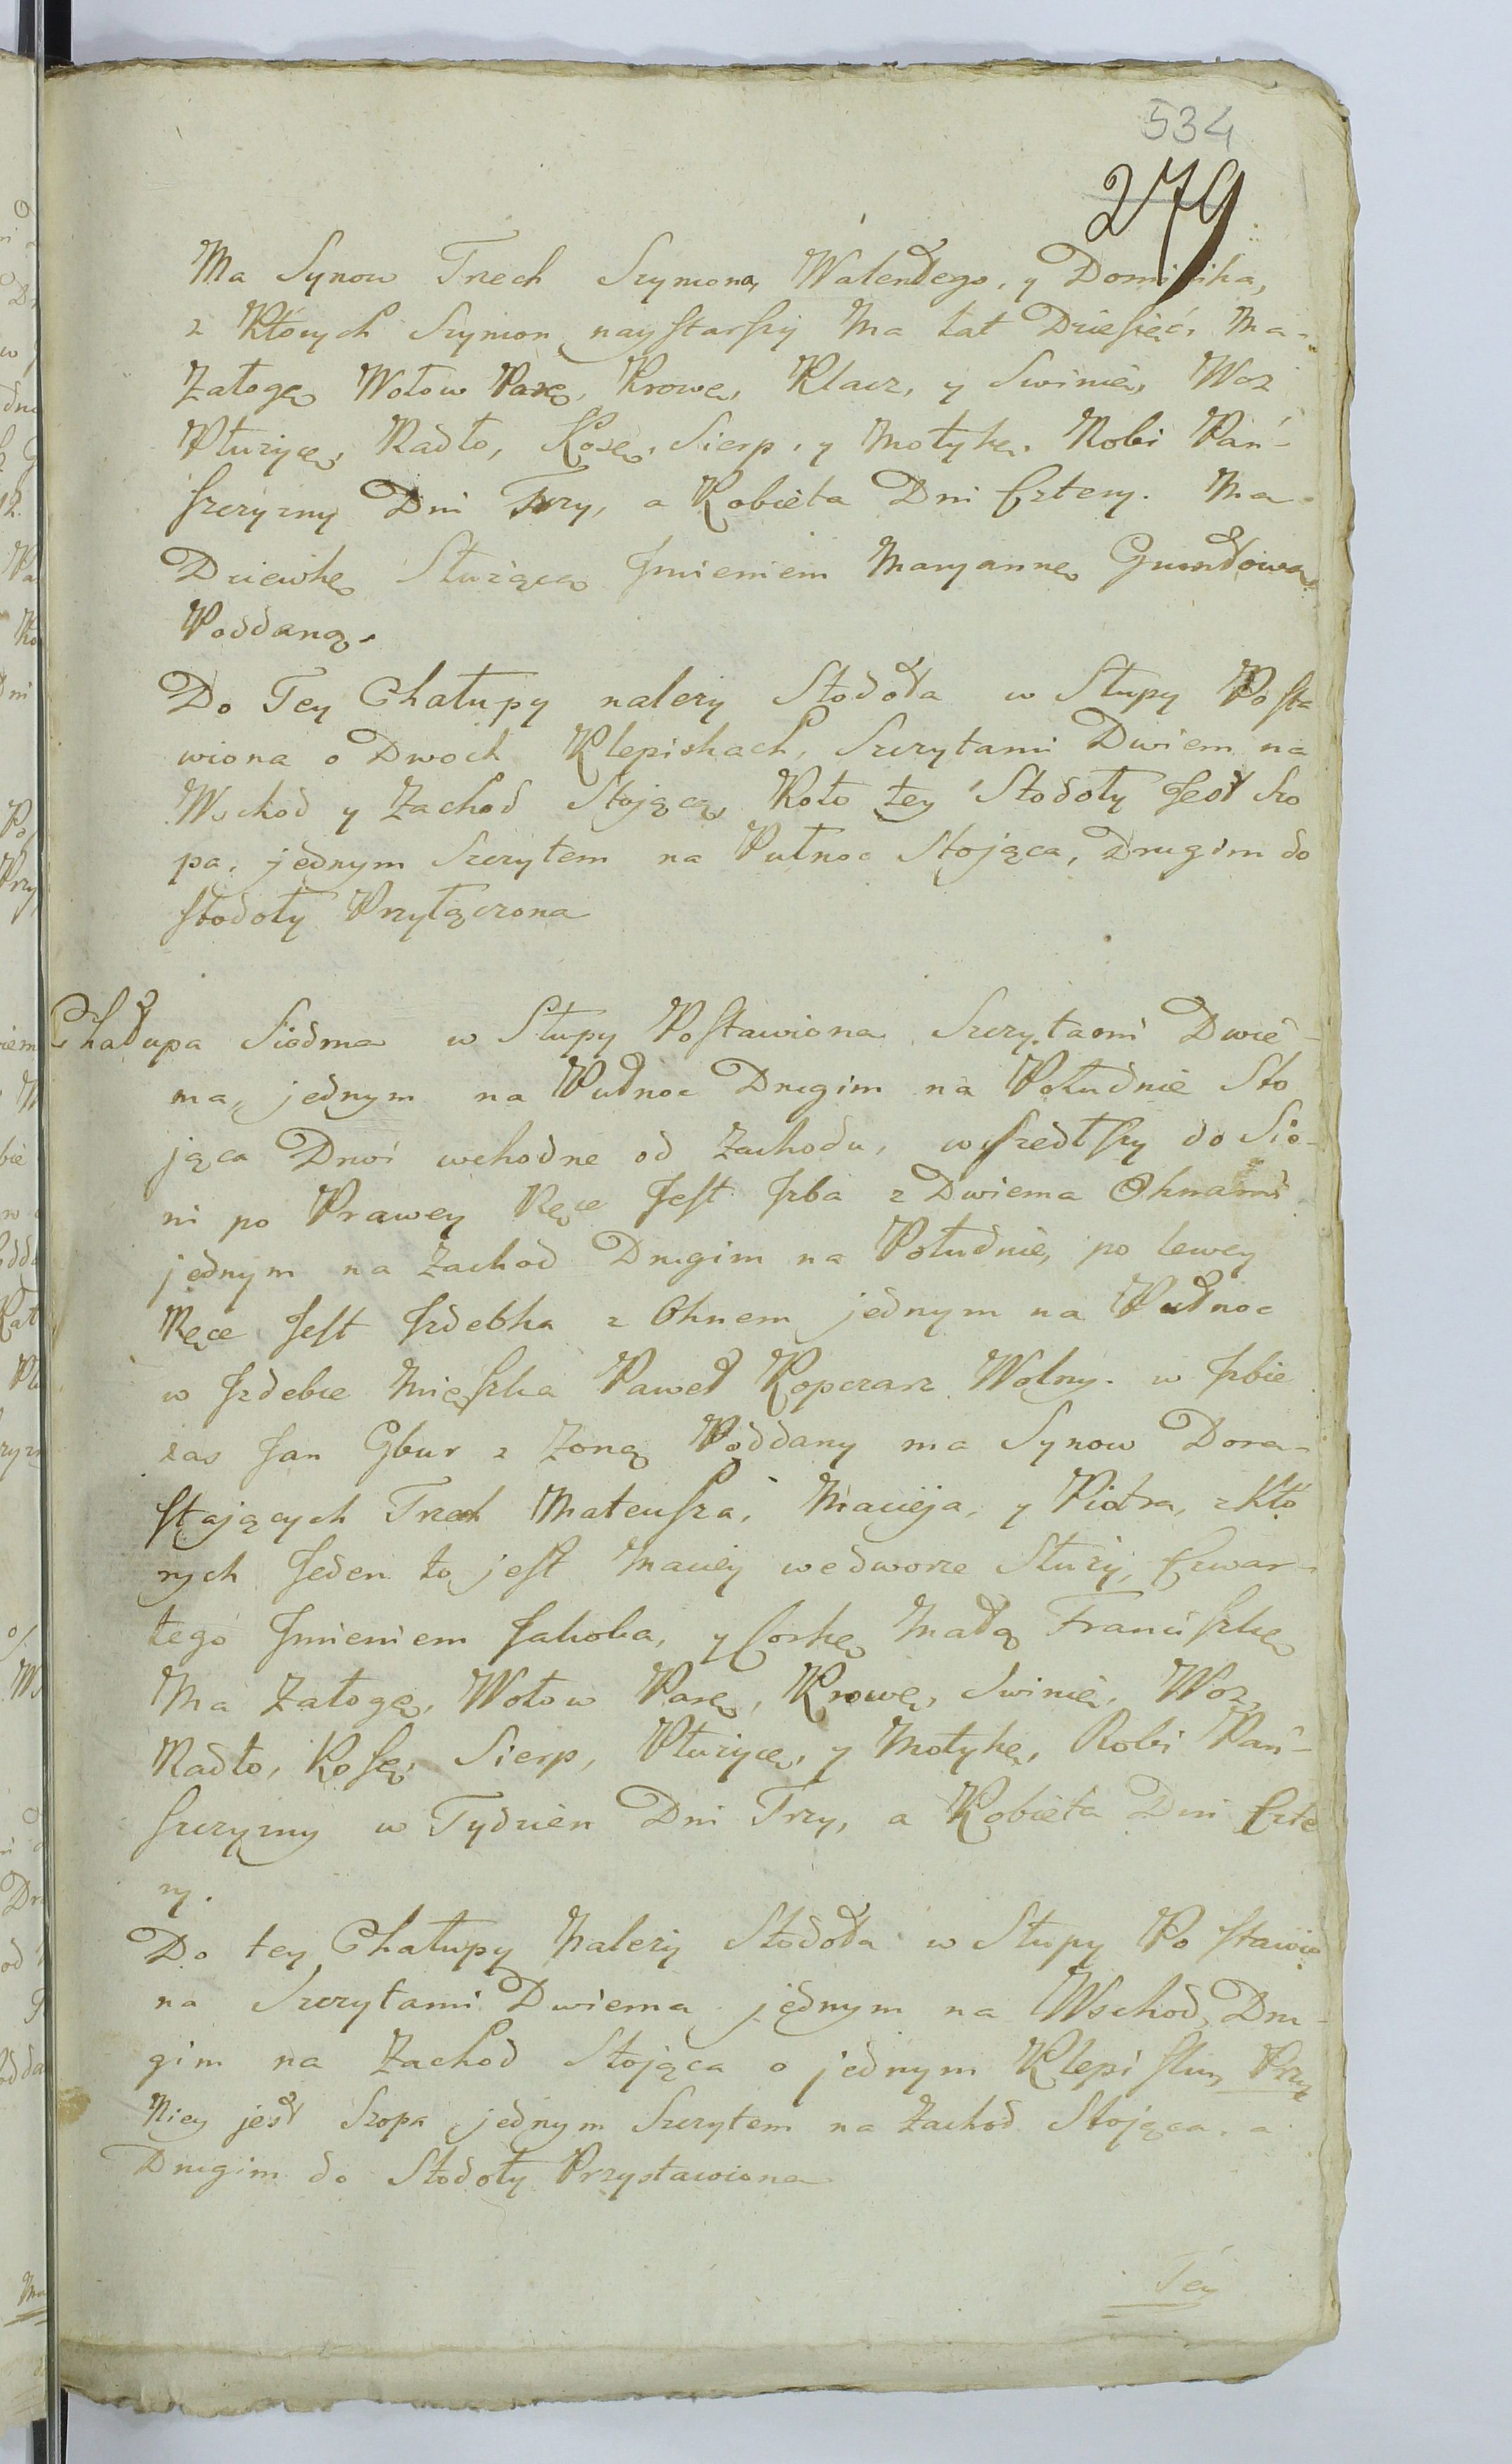 534
279
Ma Synow Trzech Szymona, Walentego, y Dominika,
z Których Szymon naystarszy Ma Lat Dziesięć, Ma
Załogę Wołow Parę, Krowę, Klacz, y Swinię, Woz
Płużycę, Radło, Kosę, Sierp, y Motykę. Robi Pań-
szczyzny Dni Trzy, a Kobieta Dni Cztery. Ma
Dziewkę Służącą Jmieniem Maryannę
Poddaną.
Do Tey Chałupy należy Stodoła w Słupy Posta
wiona o Dwoch Klepiskach, Szczytami Dwiem na
Wschod y Zachod Stojącą, Koło tey Stodoły Jest Szo
pa, jednym Szczytem na Pułnoc Stojąca, Drugim do
stodoły Przyłączona
Chałupa Siodma w Słupy Postawiona Szczytami Dwie-
ma, jednym na Pułnoc Drugim na Południe Sto
jąca Drwi wchodne od Zachodu, wszedłszy do Sie-
ni po Prawey Ręce Jest Jzba z Dwiema Oknami
jednym na Zachod Drugim na Południe, po lewey
Ręce Jest Jzdebka z Oknem jednym na Pułnoc
w Jzdebce Mieszka Paweł Kopczarz Wolny. w Jzbie
zas Jan Gbur z Zoną Poddany ma Synow Dora-
stających Trzech Mateusza, Macieja, y Piotra, z Któ
rych Jeden to jest Maciey wedworze Służy, Czwar-
tego Jmieniem Jakoba, y Corkę Małą Franciszkę
Ma Załogę, Wołow Parę, Krowę, Swinię, Woz,
Radło, Kosę, Sierp, Płużycę, y Motykę, Robi Pań-
szczyzny w Tydzien Dni Trzy, a Kobieta Dni Czte
ry.
Do tey Chałupy Należy Stodoła w Słupy Postawio
na Szczytami Dwiema jednym na Wschod, Dru-
gim na Zachod Stojąca o jednym Klepisku, Przy
Niey jest Szopa jednym Szczytem na Zachod Stojąca, a
Drugim do Stodoły Przystawiona
Tey